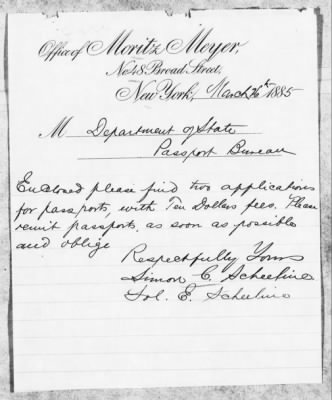 Office of Moritz Meyer,
No 48 Broad Street,
New York, March 26th 1885
M Department of State
Passport Bureau
Enclosed please find two applications
for passports, with Ten Dollars fees. Please
remit passports, as soon as possible
and oblige
Respectfully Yours
Simon C. Scheeline
Sol. E. Scheeline